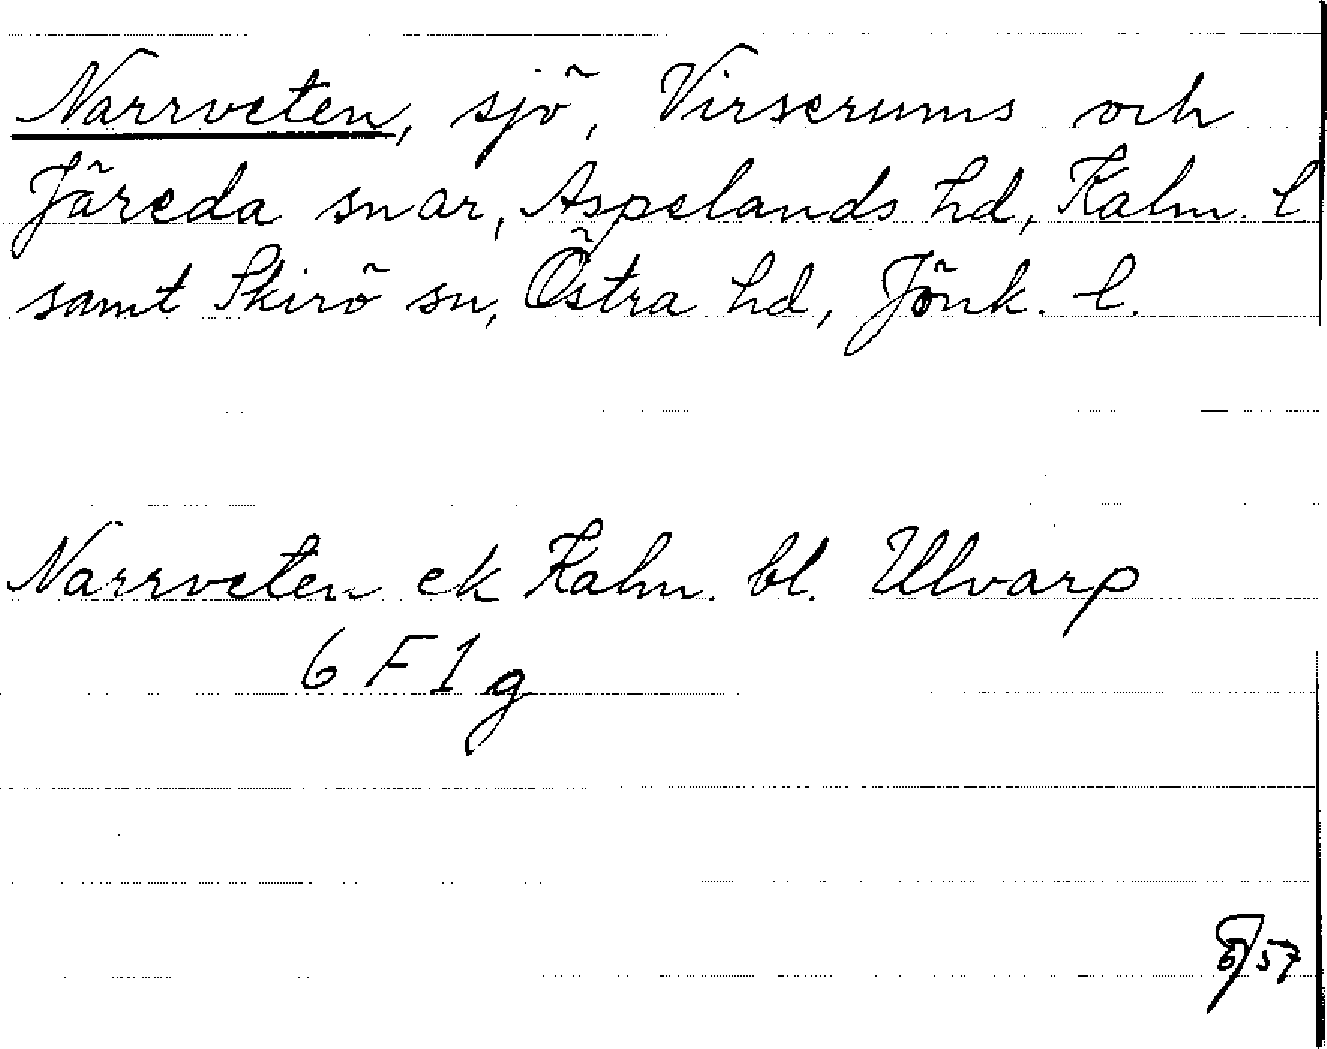 Narrveten, sjö, Virserums och
Järeda snar, Aspelands hd, Kalm. l
samt Skirö sn, Östra hd, Jönk. l.
Narrveten ek Kalm. bl. Ulvarp
6 F 1 g
57